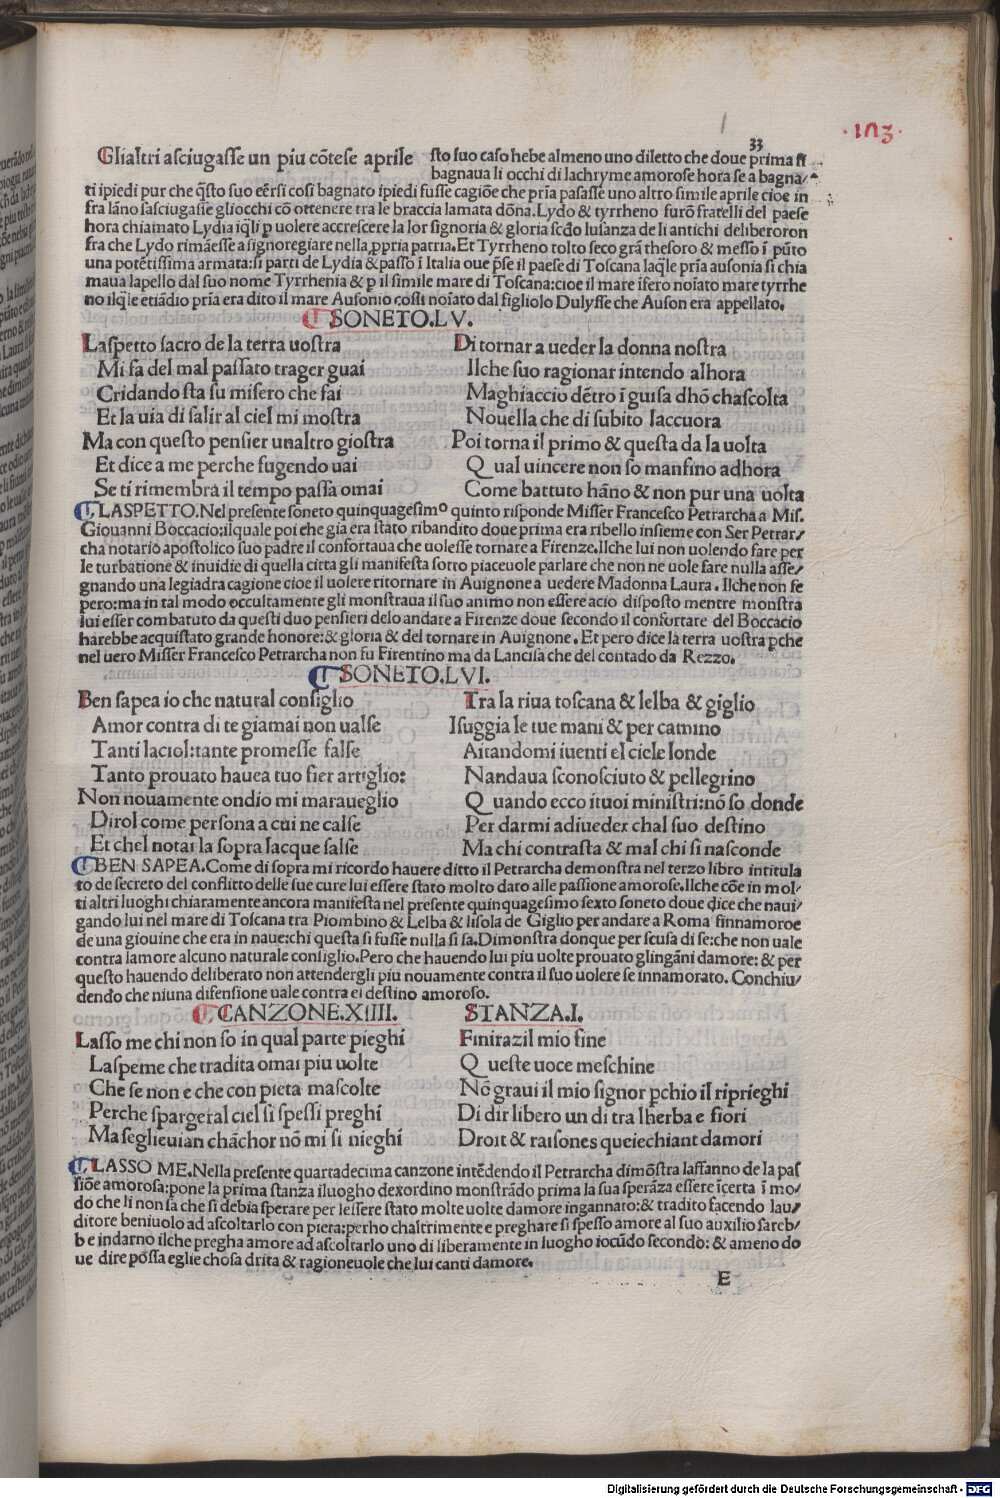 33
·103·
Glialtri asciugasse un piu cõtese aprile
sto suo caso hebe almeno uno diletto che doue prima si
bagnaua li occhi di lachryme amorose hora se a bagna/
ti ipiedi pur che q̃sto suo eẽrsi cosi bagnato ipiedi fusse cagiõe che pria pasasse uno altro simile aprile cioe in
fra lãno sasciugasse gliocchi cõ ottenere tra le braccia lamata dõna. Lydo & tyrrheno furõ fratelli del paese
hora chiamato Lydia iq̃li p uolere accrescere la lor signoria & gloria scdo lusanza de li antichi deliberoron
fra che Lydo rimãesse a signoregiare nella ,ppria patria. Et Tyrrheno tolto seco grã thesoro & messo ĩ pũto
una potẽtissima armata: si parti de Lydia & passo ĩ Italia oue p̃se il paese di Toscana laq̃le pria ausonia si chia
maua lapello dal suo nome Tyrrhenia & p il simile mare di Toscana: cioe il mare ĩfero noĩato mare tyrrhe
no ilq̃le etiãdio pria era dito il mare Ausonio cossi noĩato dal figliolo Dulysse che Auson era appellato.
SONETO. LV.
Laspetto sacro de la terra uostra
Mi fa del mal passato trager guai
Cridando sta su misero che fai
Et la uia di salir al ciel mi mostra
Ma con questo pensier unaltro giostra
Et dice a me perche fugendo uai
Se ti rimembra il tempo passa omai
Di tornar a ueder la donna nostra
Ilche suo ragionar intendo alhora
Maghiaccio dẽtro ĩ guisa dhõ chascolta
Nouella che di subito laccuora
Poi torna il primo & questa da la uolta
Qual uincere non so mansino adhora
Come battuto hãno & non pur una uolta
LASPETTO. Nel presente soneto quinquagesimo quinto risponde Misser Francesco Petrarcha a Mis.
Giouanni Boccacio: ilquale poi che gia era stato ribandito doue prima era ribello insieme con Ser Petrar/
cha notario apostolico suo padre il confortaua che uolesse tornare a Firenze. Ilche lui non uolendo fare per
le turbatione & inuidie di quella citta gli manifesta sotto piaceuole parlare che non ne uole fare nulla asse/
gnando una legiadra cagione cioe il uolere ritornare in Auignone a uedere Madonna Laura. Ilche non fe
pero: ma in tal modo occultamente gli monstraua il suo animo non essere acio disposto mentre monstra
lui esser combatuto da questi duo pensieri delo andare a Firenze doue secondo il confortare del Boccacio
harebbe acquistato grande honore: & gloria & del tornare in Auignone. Et pero dice la terra uostra pche
nel uero Misser Francesco Petrarcha non fu Firentino ma da Lancisa che del contado da Rezzo.
SONETO. LVI.
Ben sapea io che natural consiglio
Amor contra di te giamai non ualse
Tanti laciol: tante promesse false
Tanto prouato hauea tuo fier artiglio:
Non nouamente ondio mi maraueglio
Dirol come persona a cui ne calse
Et chel notai la sopra lacque salse
Tra la riua toscana & lelba & giglio
Isuggia le tue mani & per camino
Aitandomi iuenti el ciele londe
Nandaua sconosciuto & pellegrino
Quando ecco ituoi ministri: nõ so donde
Per darmi adiueder chal suo destino
Ma chi contrasta & mal chi si nasconde
BEN SAPEA. Come di sopra mi ricordo hauere ditto il Petrarcha demonstra nel terzo libro intitula
to de secreto del conflitto delle sue cure lui essere stato molto dato alle passione amorose. Ilche cõe in mol/
ti altri luoghi chiaramente ancora manifesta nel presente quinquagesimo sexto soneto doue dice che naui/
gando lui nel mare di Toscana tra Piombino & Lelba & lisola de Giglio per andare a Roma sinnamoroe
de una giouine che era in naue: chi questa si fusse nulla si sa. Dimonstra donque per scusa di se: che non uale
contra lamore alcuno naturale consiglio. Pero che hauendo lui piu uolte prouato glingãni damore: & per
questo hauendo deliberato non attendergli piu nouamente contra il suo uolere se innamorato. Conchiu/
dendo che niuna difensione uale contra el destino amoroso.
CANZONE. XIIII. STANZA. I.
Lasso me chi non so in qual parte pieghi
La speme che tradita omai piu uolte
Che se non e che con pieta mascolte
Perche spargeral ciel si spessi preghi
Ma seglieuian chãchor nõ mi si nieghi
Finirazil mio fine
Queste uoce meschine
Nõ graui il mio signor pchio il riprieghi
Di dir libero un di tra lherba e fiori
Droit & raisones queiechiant damori
LASSO ME. Nella presente quartadecima canzone intẽdendo il Petrarcha dimõstra laffanno de la pas
siõe amorosa: pone la prima stanza iluogho dexordino monstrãdo prima la sua sperãza essere ĩcerta ĩ mo/
do che li non sa che si debia sperare per lessere stato molte uolte damore ingannato: & tradito facendo lau/
ditore beniuolo ad ascoltarlo con pieta: perho chaltrimente e preghare si spesso amore al suo auxilio sareb/
be indarno ilche pregha amore ad ascoltarlo uno di liberamente in luogho iocũdo secondo: & ameno do
ue dire possa eglie chosa drita & ragioneuole che lui canti damore.
E
Digitalisierung gefördert durch die Deutsche Forschungsgemeinschaft - DFG